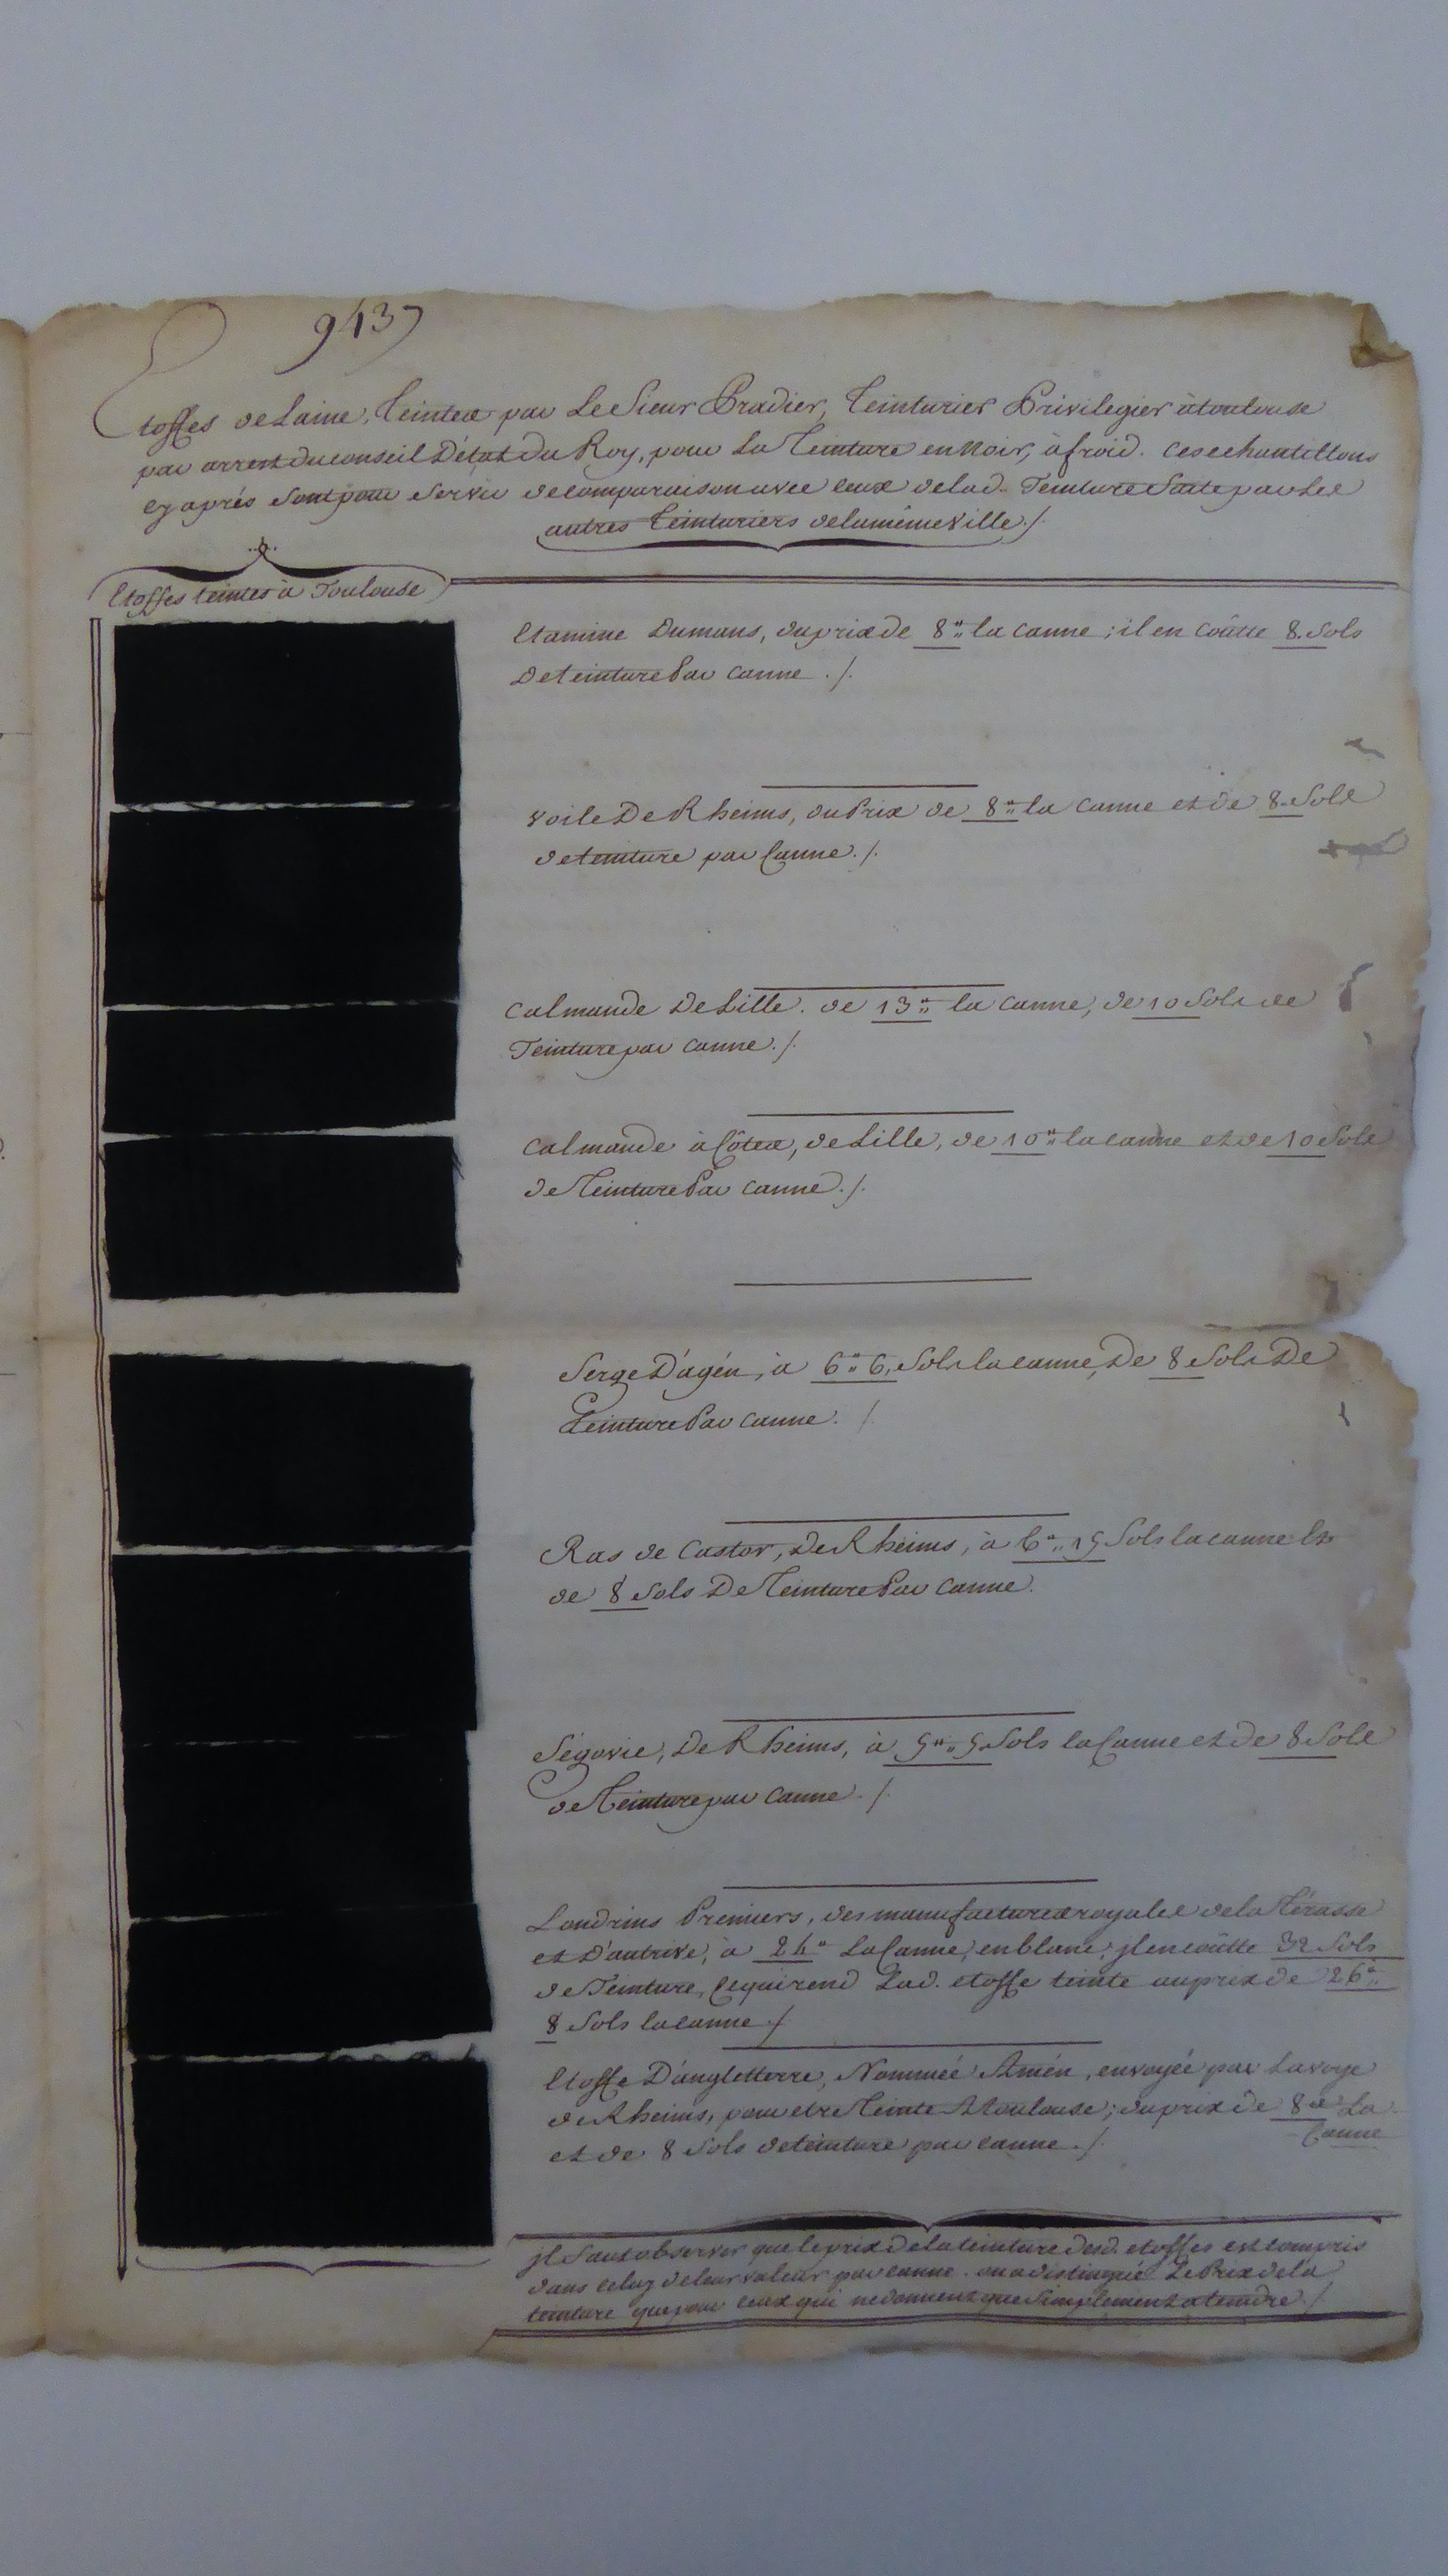 9437
Etoffes de Laine, Teintes par Le Sieur Pradier, Teinturier Privilegier à toulouse
par arrest du conseil D'état Du Roy, pour La Teinture en Noir, à froid. Ces echantillons
cy aprés sont pour servir de comparaison avec ceux de lad. Teinture faite par Les
autres Teinturiers de la même Ville ./.
Etoffes teintes à Toulouse
Etamine Dumans, du prix de 8ᵗᵗ la Canne ; il en Coûtte 8. Sols
De teinture Par Canne ./.
Voile De Rheims, du Prix de 8ᵗᵗ la Canne et de 8. Sols
de teinture par Canne ./.
Calmande De Lille. de 13ᵗᵗ la Canne, de 10 Sols de
Teinture par Canne ./.
Calmande à Côtes, de Lille, de 10ᵗᵗ la canne et de 10 Sols
de Teinture Par Canne ./.
Serge D'agén, à 6ᵗᵗ 6. Sols la canne, De 8 Sols De
Teinture Par Canne. /.
Ras de Castor, De Rheims, à 6ᵗᵗ 15 Sols la canne Et
de 8 Sols De Teinture Par Canne.
Ségovie, De Rheims, à 5ᵗᵗ 5 Sols la Canne et de 8 Sols
de Teinture par Canne ./.
Londrins Premiers, des manufactures royales de la Térasse
et D'autrive, à 24ᵗᵗ La Canne, en blanc, jl en coûtte 32 Sols
de Teinture, Ce qui rend Lad. etoffe teinte au prix de 26ᵗᵗ
8 Sols la canne ./.
Etoffe D'angletterre, Nommeé Amén, envoyée par La voye
de Rheims, pour etre Teinte A toulouse ; du prix de 8ᵗᵗ La
Canne
et de 8 Sols de teinture par canne ./.
jl faut observer que le prix De la teinture Desd. etoffes est compris
dans celuy de leur valeur par canne. on a distingué Le Prix de la
teinture que pour ceux qui ne donnent que simplement a teindre ./.